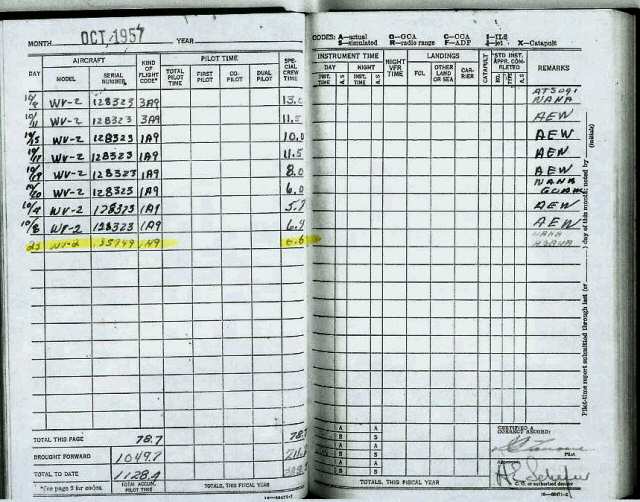 MONTH OCT, 1957 YEAR
CODES: A—actual G—GCA C—CCA I—ILS
S—simulated R—radio range F—ADF J—jet X—Catapult
AIRCRAFT PILOT TIME INSTRUMENT TIME LANDINGS
DAY MODEL SERIAL NUMBER KIND OF FLIGHT CODE* TOTAL PILOT TIME FIRST PILOT CO-PILOT DUAL PILOT SPECIAL CREW TIME
DAY NIGHT NIGHT VFR TIME FCL OTHER LAND OR SEA CARRIER CATAPULT STD INST. APPR. COMPLETED REMARKS
INST. TIME A S INST. TIME A S NO. TYPE A S
10/9 WV-2 128323 3A9 13. ATSUGI NAHA
10/11 WV-2 128323 3A9 11.5 AEW
10/15 WV-2 128323 1A9 10.0 AEW
10/17 WV-2 128323 1A9 11.5 AEW
10/19 WV-2 128323 1A9 8.0 AEW
10/20 WV-2 128323 1A9 6.0 NAHA GUAM
WV-2 128323 1A9 5.7 AEW
10/8 WV-2 128323 1A9 6.4 AEW
23 WV-2 1A9 6.6
TOTAL THIS PAGE 78.7 78.7
BROUGHT FORWARD 1049.7
TOTAL TO DATE 1128.4
*See page 3 for codes. TOTAL ACCUM. PILOT TIME TOTALS, THIS FISCAL YEAR
TOTALS, THIS FISCAL YEAR
CERTIFIED
CORRECT RECORD:
Pilot.
C. O. or authorized
Pilot-time report submitted through last (or ) day of this month noted by (initials)